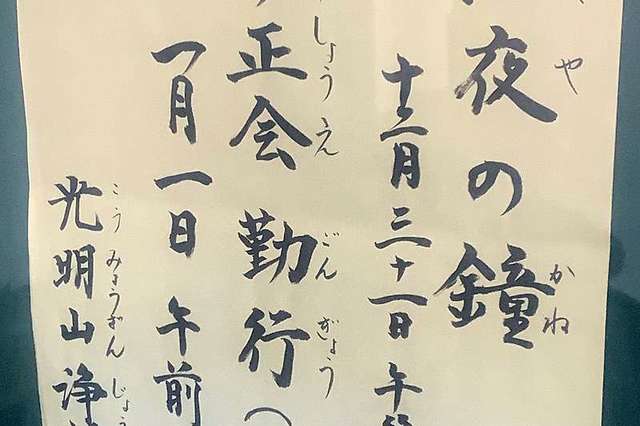 や　かね
夜の鐘
十二月三十一日 午
しょうえ　ごんぎょう
正会 勤行
一月一日 午前
こうみょうざん じょう
光明山